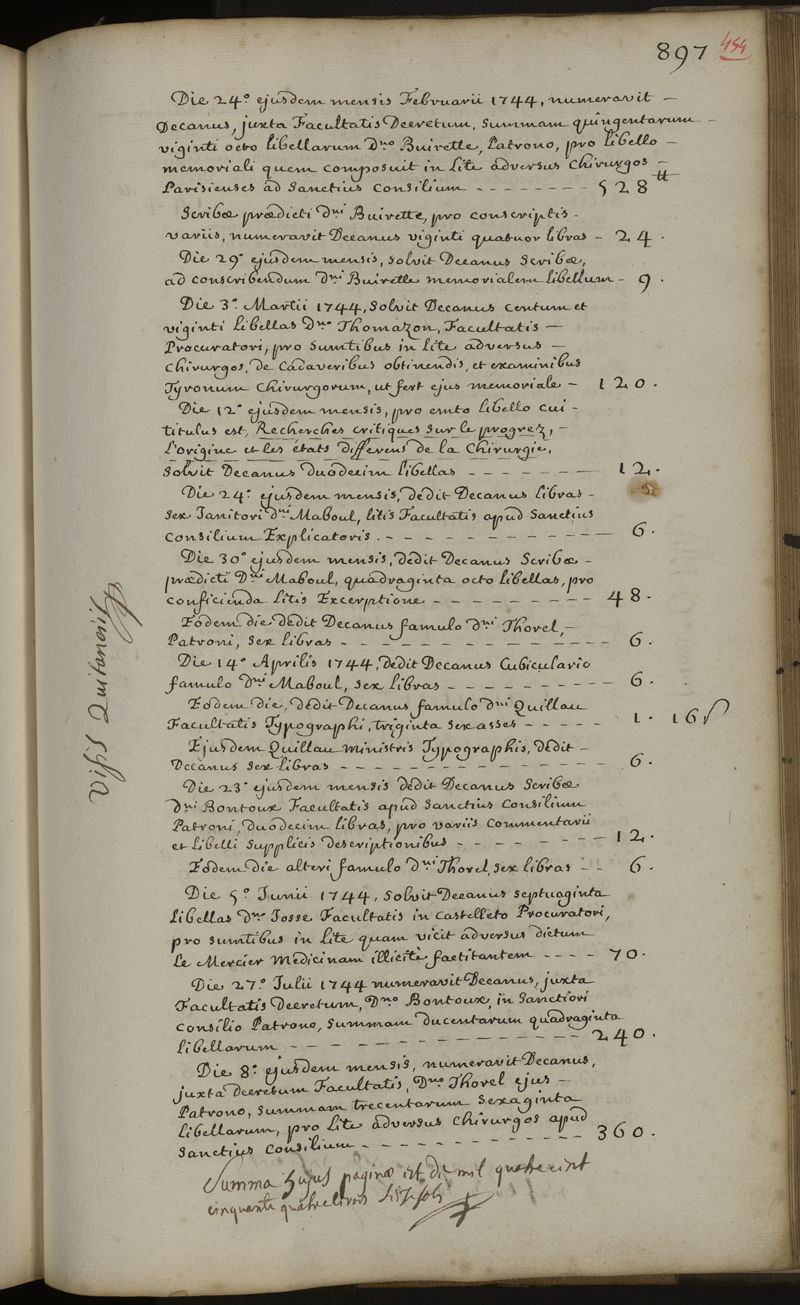 897 454
Die 24.° ejusdem mensis Februarii 1744, numeravit —
Decanus, juxta Facultatis Decretum, Summam quingentarum —
viginti octo libellarum D.no Buirette, Patrono, pro libello —
memoriali quem composuit in Lite adversus Chirurgos —
Parisienses ad Sanctius Consilium - - - - - - - - 528 ₶
Scribæ prædicti D.ni Buirette, pro conscriptis -
variis, numeravit Decanus viginti quatuor libras - 24.
Die 29.° ejusdem mensis, Solvit Decanus Scribæ,
ad conscribendum D.ni Buirette memorialem libellum - 9.
Die 3.° Martii 1744, Solvit Decanus centum et
viginti Libellas D.no Thomazon, Facultatis —
Procuratori, pro Sumtibus in Lite adversus —
Chirurgos, de Cadaveribus obtinendis, et examinibus
Tyronum Chirurgorum, ut fert ejus memoriale - 120.
Die 12.° ejusdem mensis, pro emto libello cui -
titulus est, Recherches critiques sur le progrez, -
L'origine et les états differens de la Chirurgie,
Solvit Decanus duodecim libellas - - - - - - - 12.
Die 24.° ejusdem mensis, dedit Decanus libras -
Sex Janitori D.ni Maboul, litis Facultatis apud Sanctius
Consilium Explicatoris. - - - - - - - - - - 6.
Die 30.° ejusdem mensis, dedit Decanus Scribæ -
prædicti D.ni Maboul, quadraginta octo libellas, pro
conficienda Litis Excerptione - - - - - - - - - 48.
Eodem die dedit Decanus famulo D.ni Thorel, -
Patroni, Sex libras - - - - - - - - - - - - 6.
Die 14.° Aprilis 1744, dedit Decanus Cubiculario
famulo D.ni Maboul, Sex libras - - - - - - - - 6.
Eodem die, dedit Decanus famulo D.ni Quillau
Facultatis Typographi, triginta Sex asses - - - - - 1. 16 s
Ejusdem Quillau ministris Typographis, dedit -
Decanus Sex libras - - - - - - - - - - - - 6.
Die 23.° ejusdem mensis dedit Decanus Scribæ
D.ni Bontoux Facultatis apud Sanctius Consilium
Patroni, duodecim libras, pro variis Commentarii
et Libelli Supplicis descriptionibus - - - - - - - 12.
Eodem die alteri famulo D.ni Thorel, Sex libras - - 6.
Die 5.° Junii 1744, Solvit Decanus Septuaginta
Libellas D.no Josse Facultatis in Castelleto Procuratori,
pro Sumtibus in Lite quam vicit adversus dictum
Le Mercier Medicinam illicitè factitantem - - - - 70.
Die 27.° Julii 1744 numeravit Decanus, juxta
Facultatis Decretum, D.no Bontoux, in Sanctiori
Consilio Patrono, Summam ducentarum quadraginta
libellarum - - - - - - - - - - - - - 240.
Die 8.° ejusdem mensis, numeravit Decanus,
juxta decretum Facultatis, D.no Thorel ejus -
Patrono, Summam trecentarum Sexaginta
Libellarum, pro Lite adversus Chirurgos apud
Sanctius Consilium - - - - - - - - - - 360.
Summa hujus paginæ est de mil quatre cent
cinquante quatre livres Seize sols